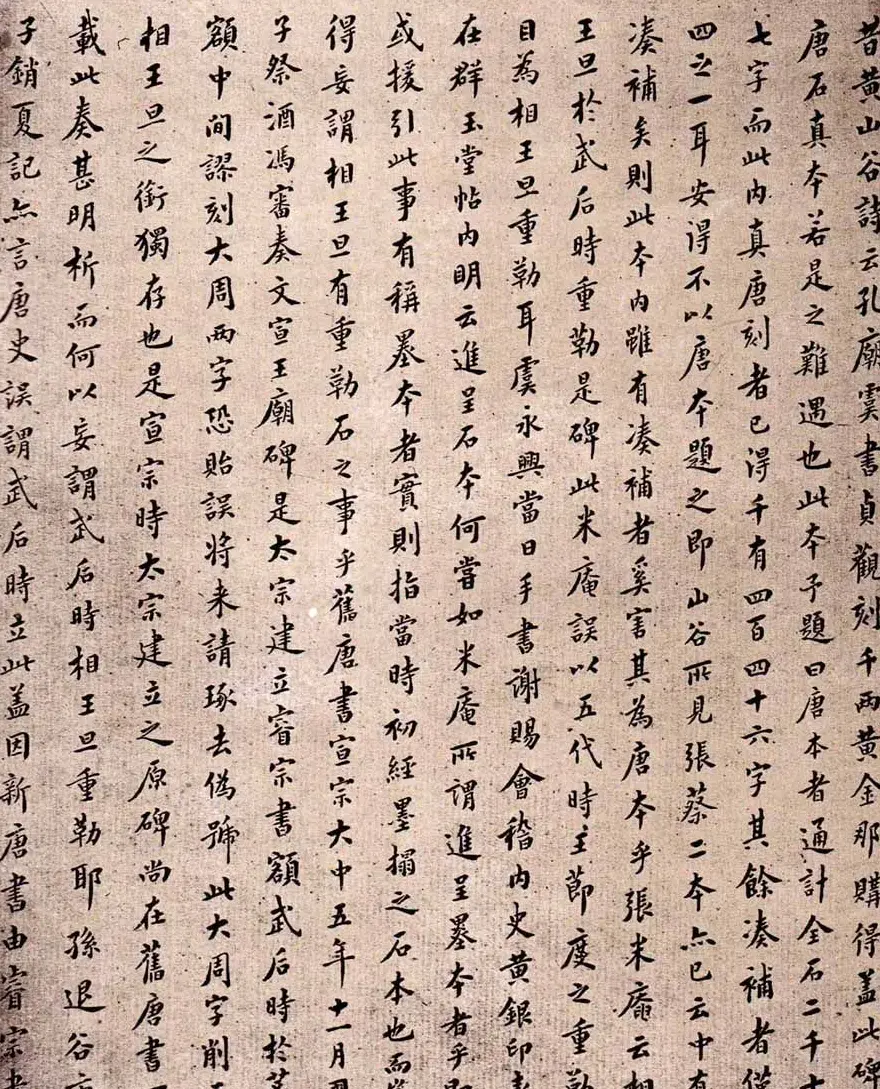 昔黃山谷詩云孔廟虞書貞觀刻千兩黃金那購得蓋此碑
唐石真本若是之難遇也此本予題曰唐本者通計全石二千
七字而此內真唐刻者已得千有四百四十六字其餘湊補者僅
四之一耳安得不以唐本題之即山谷所見張蔡二本亦已云中有
湊補矣則此本內雖有湊補者奚害其為唐本乎張米庵云相
王旦於武后時重勒是碑此米庵誤以五代時王節度之重勒
目為相王旦重勒耳虞永興當日手書謝賜會稽內史黃銀印
在群玉堂帖內明云進呈石本何嘗如米庵所謂進呈墨本者乎
或援引此事有稱墨本者實則指當時初經墨搨之石本也而
得妄謂相王旦有重勒石之事乎舊唐書宣宗大中五年十一月
子祭酒馮審奏文宣王廟碑是太宗建立睿宗書額武后時於
額中間謬刻大周兩字恐貽誤將來請琢去偽號此大周字削
相王旦之銜獨存也是宣宗時太宗建立之原碑尚在舊唐書
載此奏甚明析而何以妄謂武后時相王旦重勒耶孫退谷
子銷夏記亦言唐史誤謂武后時立此蓋因新唐書由睿宗